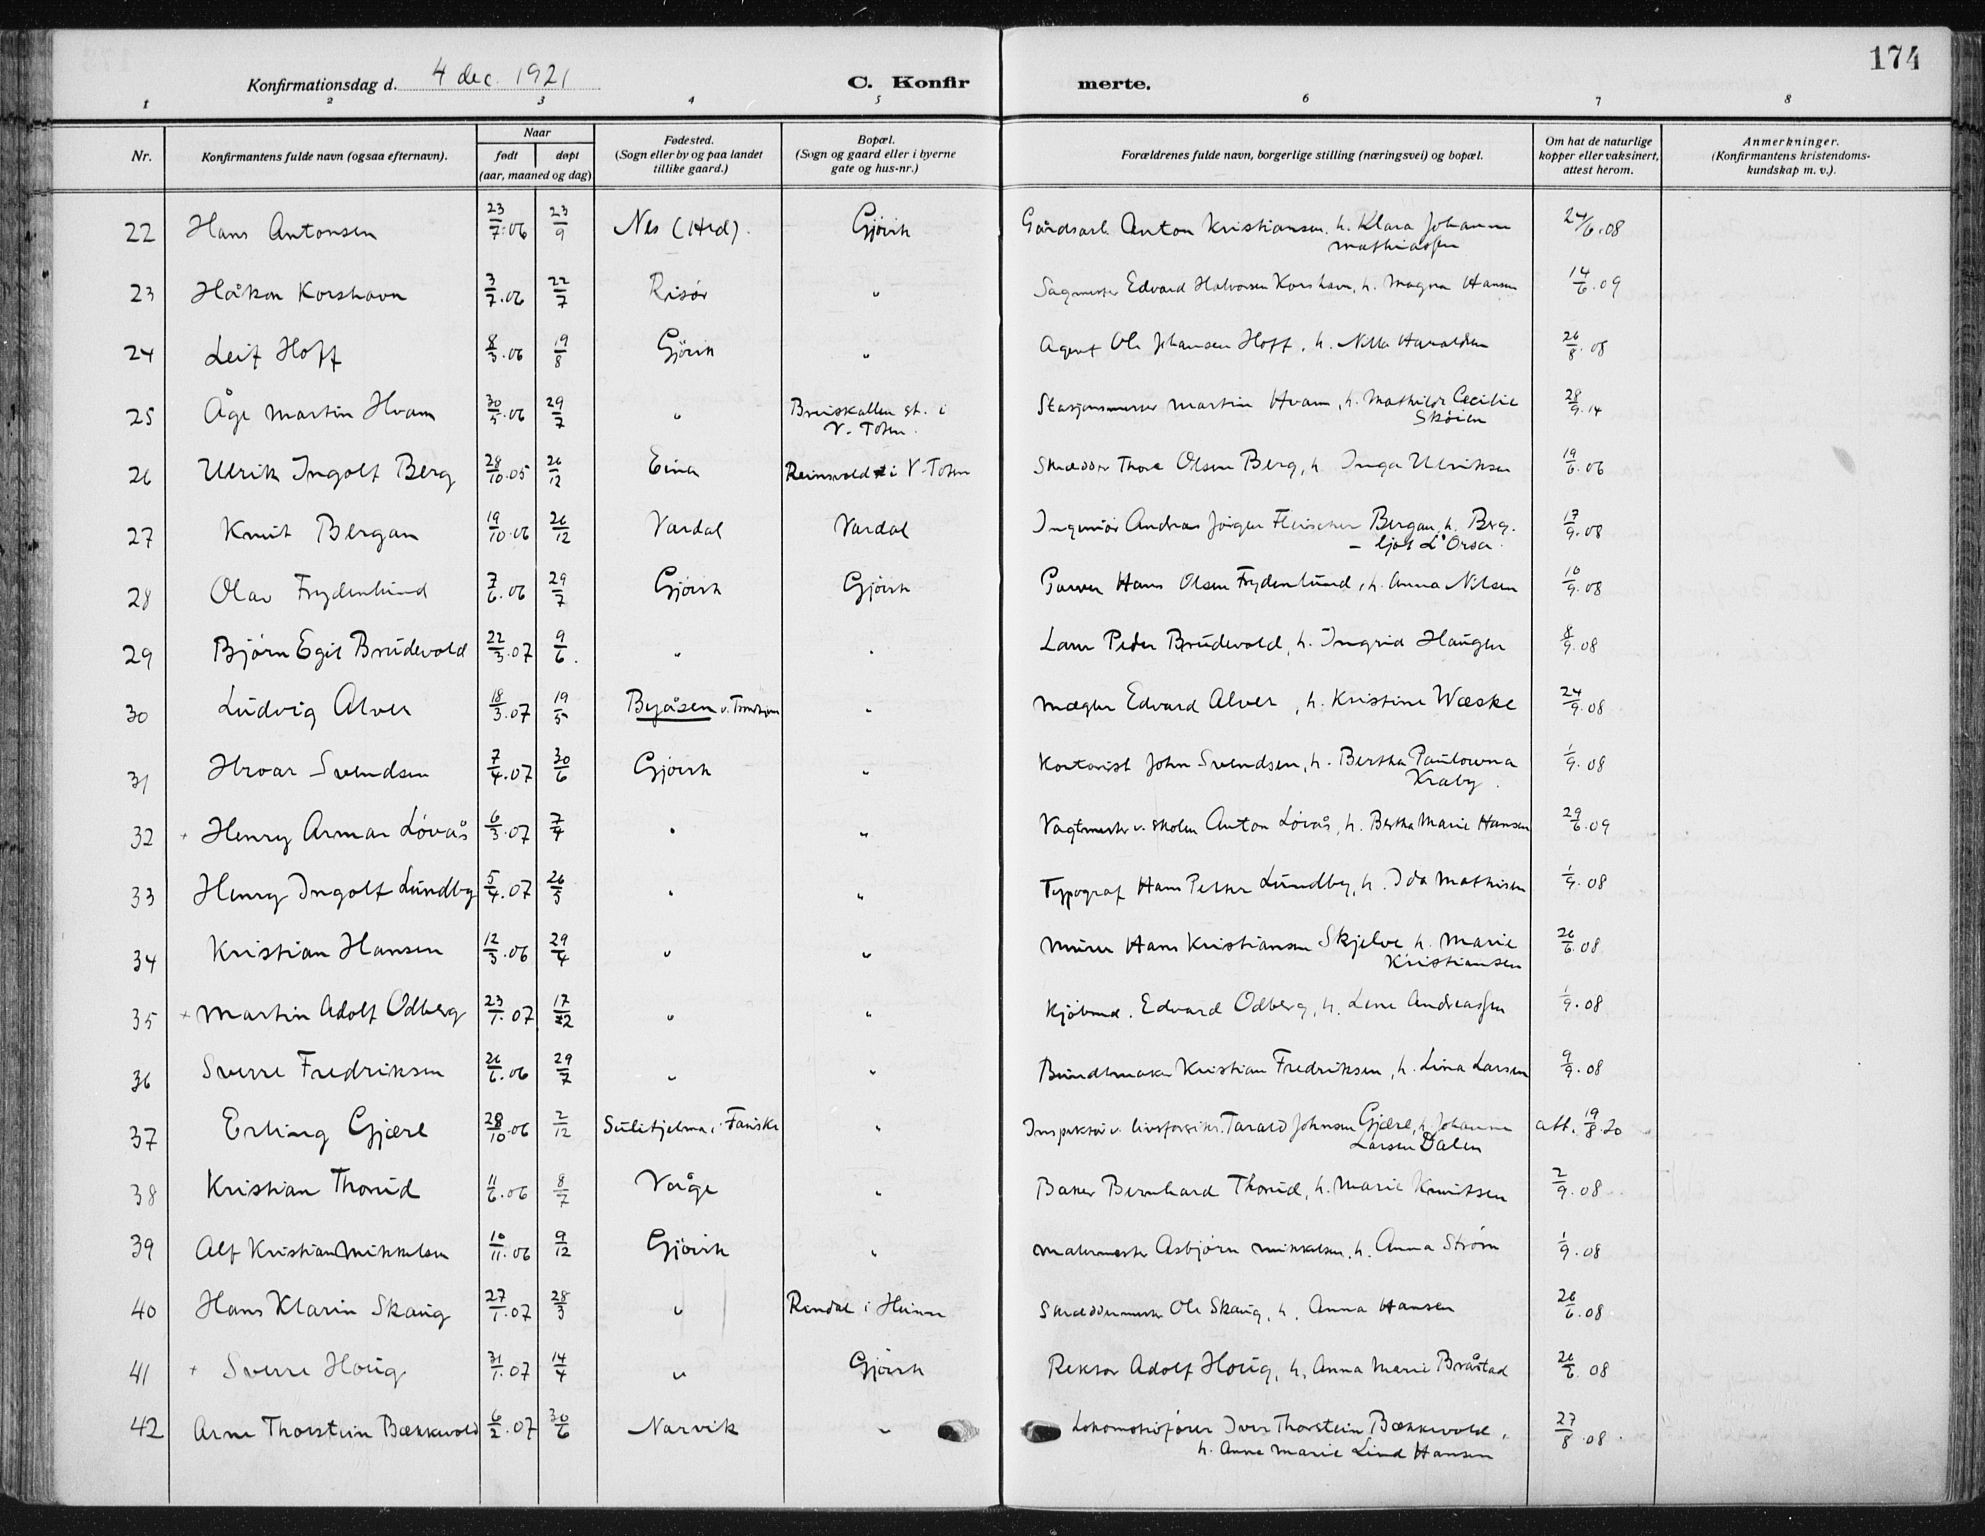 174
Konfirmationsdag d. 4 dec. 1921
C. Konfirmerte.
1 2 3 4 5 6 7 8
Nr. Konfirmantens fulde navn (ogsaa efternavn). Naar født døpt (aar, maaned og dag) Fødested. (Sogn eller by og paa landet tillike gaard.) Bopæl. (Sogn og gaard eller i byerne gate og hus-nr.) Forældrenes fulde navn, borgerlige stilling (næringsvei) og bopæl. Om hat de naturlige kopper eller vaksinert, attest herom. Anmerkninger. (Konfirmantens kristendoms-kundskap m. v.).
22 Hans Antonsen 23/7.06 23/9 Nes (Hed). Gjövik Gårdsarb. Anton Kristiansen, h. Klara Johanne
Mathiassen 24/6.08
23 Håkon Korshavn 3/7.06 22/7 Risör " Sagmester Edvard Halvorsen Korshavn, h. Magna Hansen 14/6.09
24 Leif Hoff 8/3.06 19/8 Gjövik " Agent Ole Johansen Hoff, h. Haraldsen 26/8.08
25 Åge Martin Hvam 30/5.06 29/7 " Breiskallen st. i
V. Toten. Stasjonsmester Martin Hvam, h. Mathilde Cecilie
Skøien 28/9.14
26 Ulrik Ingolf Berg 28/10.05 26/12 Eina Reinsvold i V. Toten Skrædder Thore Olsen Berg, h. Inga Ulriksen 19/6.06
27 Knut Bergan 19/10.06 26/12 Vardal Vardal Ingeniör Andreas Jörgen Fleischer Bergan, h. Berg-
- ljot L'Orsa. 17/9.08
28 Olav Frydenlund 7/6.06 29/7 Gjövik Gjövik Garver Hans Olsen Frydenlund, h. Anna Nilsen 10/9.08
29 Bjørn Egil Brudevold 22/3.07 9/6. " " Peder Brudevold, h. Ingrid Haugen 8/9.08
30 Ludvig Alver 18/3.07 19/5 Byåsen v. Trondhjem " Mægler Edvard Alver, h. Kristine Wæske 24/9.08
31 Hroar Svendsen 7/4.07 30/6 Gjövik " Kontorist John Svendsen, h. Bertha Paulowna
Kraby. 1/9.08
32 + Henry Armar Løvås 6/3.07 7/4 " " Vagtmester v. skolen Anton Løvås, h. Bertha Marie Hansen 29/6.09
33 Henry Ingolf Lundby 5/4.07 26/5 " " Typograf Hans Petter Lundby, h. Ida Mathisen 1/9.08
34 Kristian Hansen 12/3.06 29/4 " " Murer Hans Kristiansen Skjelve h. Marie
Kristiansen 26/6.08
35 + Martin Adolf Odberg 23/1.07 17/2 " " Kjöbmd. Edvard Odberg, h. Lene Andreassen 1/9.08
36 Sverre Fredriksen 26/6.06 29/7 " " Bundtmaker Kristian Fredriksen, h. Lina Larsen 9/9.08
37 Erling Gjære 28/10.06 2/12 Sulitjelma i Fauske " Inspektör v. livsforsikr. Tarald Johnsen Gjære, h. Johanne
Larsen Dalen att. 19/8.20
38 Kristian Thorud 11/6.06 8/7 Vågå " Baker Bernhard Thorud, h. Marie Knutsen 2/9.08
39 Alf Kristian Mikkelsen 10/11.06 9/12 Gjövik " Malermester Asbjörn Mikkelsen, h. Anna Ström 1/9.08
40 Hans Klarin Skaug 27/1.07 28/3 " i Hunn Skræddermester Ole Skaug, h. Anna Hansen 26/6.08
41 + Sverre Houg 31/1.07 14/4 " Gjövik Rektor Adolf Houg, h. Anna Marie Bråstad 26/6.08
42 Arne Thorstein Bækkevold 6/2.07 30/6 Narvik " Lokomotivförer Iver Thorstein Bækkevold,
h. Anne Marie Lind Hansen 27/8.08.